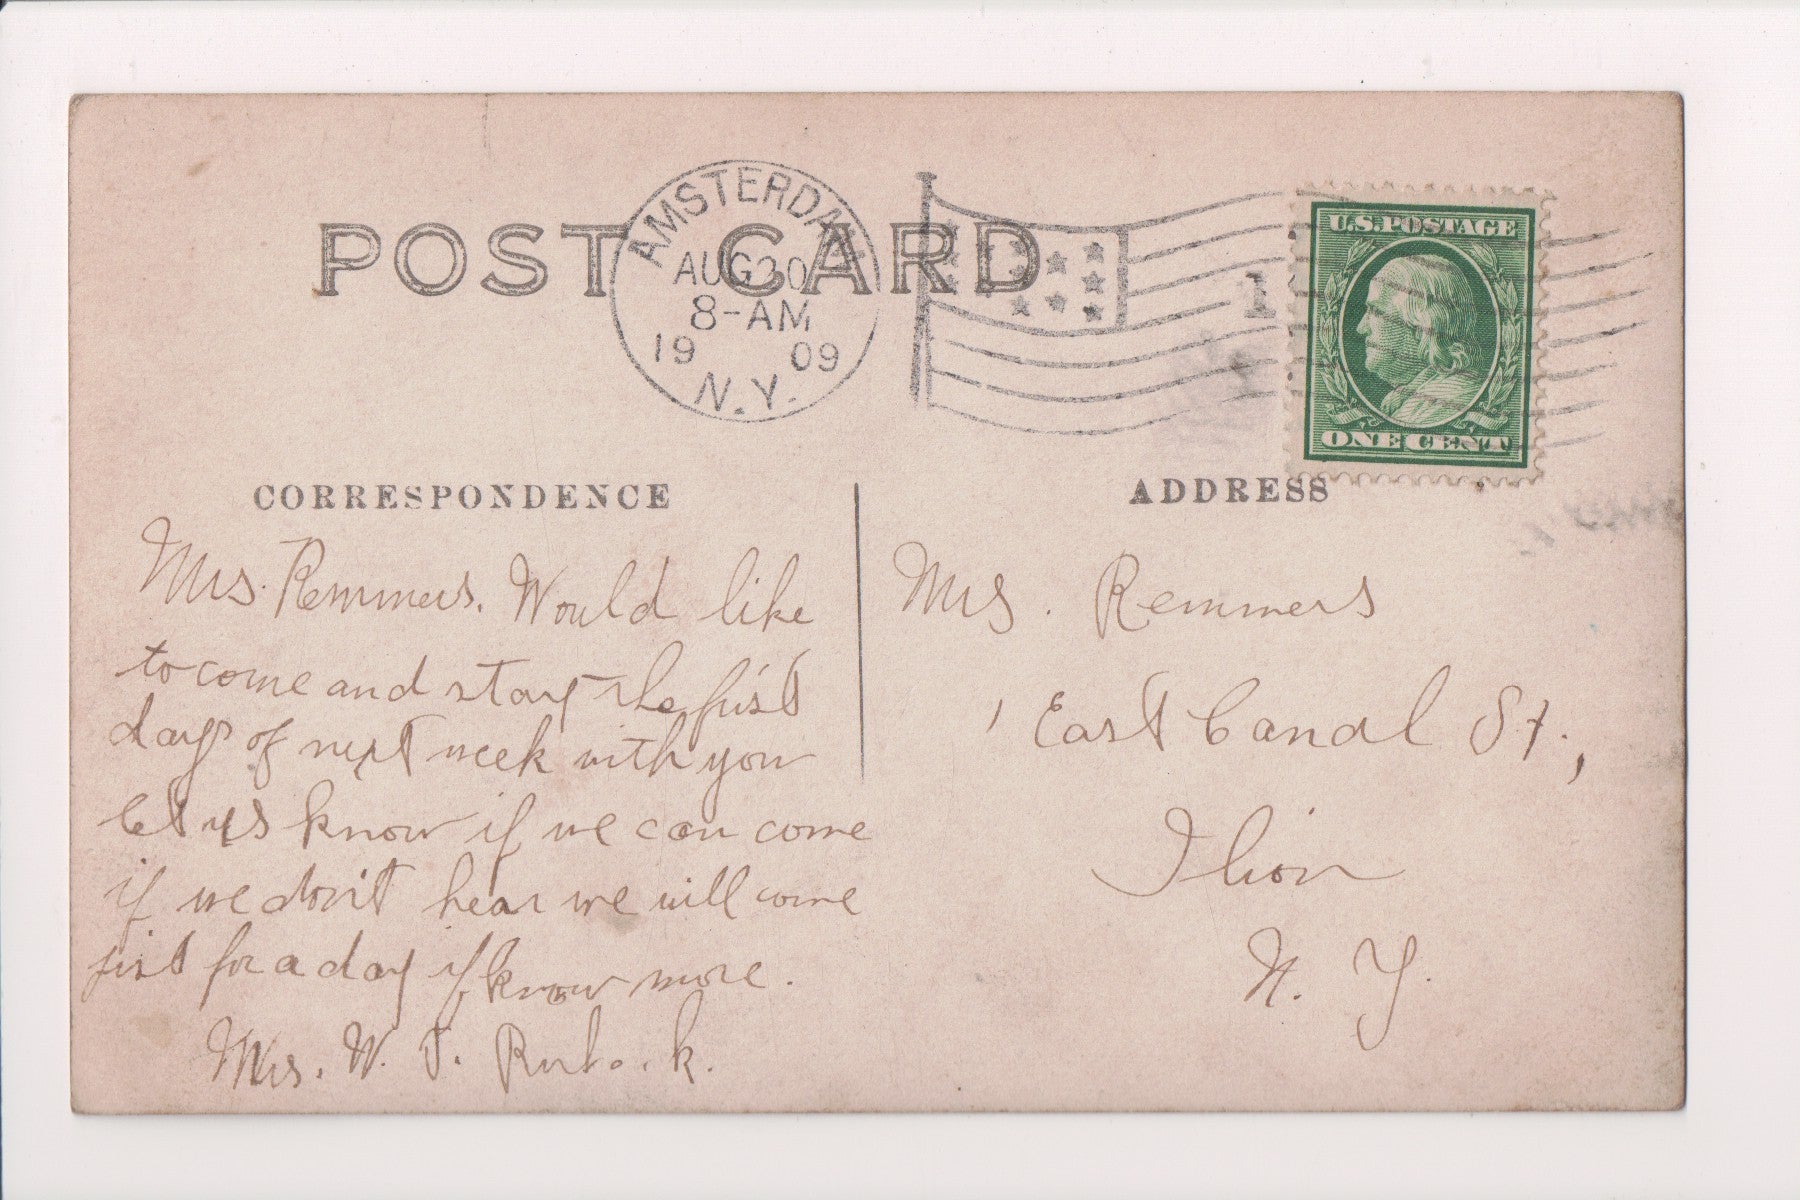 POST CARD
AMSTERDAM
AUG 20
8-AM
19 09
N.Y.
1
U.S. POSTAGE
ONE CENT
CORRESPONDENCE
Mrs. Remmers. Would like
to come and stay the first
days of next week with you
let us know if we can come
if we don't hear we will come
just for a day if know more.
Mrs. W. J.
ADDRESS
Mrs. Remmers
East Canal St.,
Ilion
N. Y.